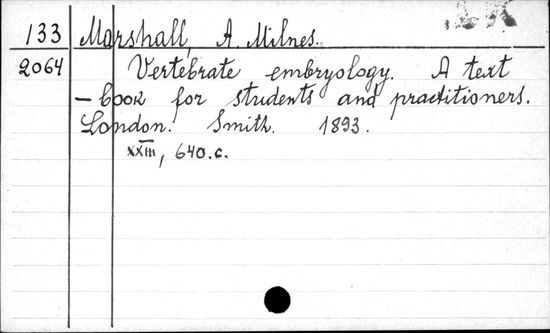 133 Marshall, A. Milnes.
2064 Vertebrate embryology. A text
- book for students and practitioners.
London. Smith. 1893.
XXIII, 640.c.